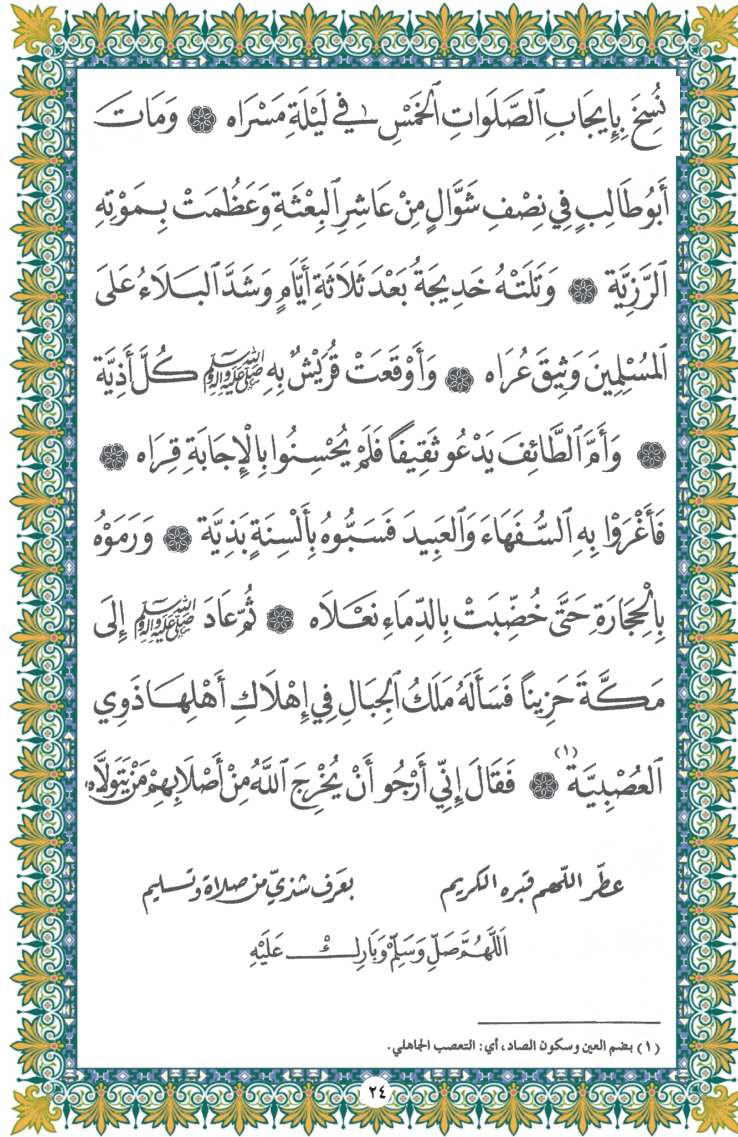 نُسِخَ بِإِيجَابِ ٱلصَّلَوَاتِ ٱلْخَمْسِ فِي لَيْلَةِ مَسْرَاه ۞ وَمَاتَ
أَبُو طَالِبٍ فِي نِصْفِ شَوَّالٍ مِنْ عَاشِرِ ٱلبِعْثَةِ وَعَظُمَتْ بِمَوْتِهِ
ٱلرَّزِيَّة ۞ وَتَلَتْهُ خَدِيجَةُ بَعْدَ ثَلَاثَةِ أَيَّامٍ وَشَدَّ ٱلبَلَاءُ عَلَى
ٱلمُسْلِمِينَ وَثِيقَ عُرَاه ۞ وَأَوْقَعَتْ قُرَيْشٌ بِهِ صلى الله عليه وآله وسلم كُلَّ أَذِيَّة
۞ وَأَمَّ ٱلطَّائِفَ يَدْعُو ثَقِيفًا فَلَمْ يُحْسِنُوا بِالْإِجَابَةِ قِرَاه ۞
فَأَغْرَوْا بِهِ ٱلسُّفَهَاءَ وَٱلعَبِيدَ فَسَبُّوهُ بِأَلْسِنَةٍ بَذِيَّة ۞ وَرَمَوْهُ
بِٱلْحِجَارَةِ حَتَّى خُضِّبَتْ بِالدِّمَاءِ نَعْلَاه ۞ ثُمَّ عَادَ صلى الله عليه وآله وسلم إِلَى
مَكَّةَ حَزِينًا فَسَأَلَهُ مَلَكُ ٱلجِبَالِ فِي إِهْلَاكِ أَهْلِهَا ذَوِي
ٱلعُصْبِيَّة (١) ۞ فَقَالَ إِنِّي أَرْجُو أَنْ يُخْرِجَ ٱللَّهُ مِنْ أَصْلَابِهِمْ مَنْ يَتَوَلَّاه
عطّر اللّهم قبره الكريم بعَرف شذيّ من صلاة وتسليم
اللَّهُمَّ صَلِّ وَسَلِّمْ وَبَارِكْ عَلَيْهِ
(١) بضم العين وسكون الصاد، أي: التعصب الجاهلي.
٢٤